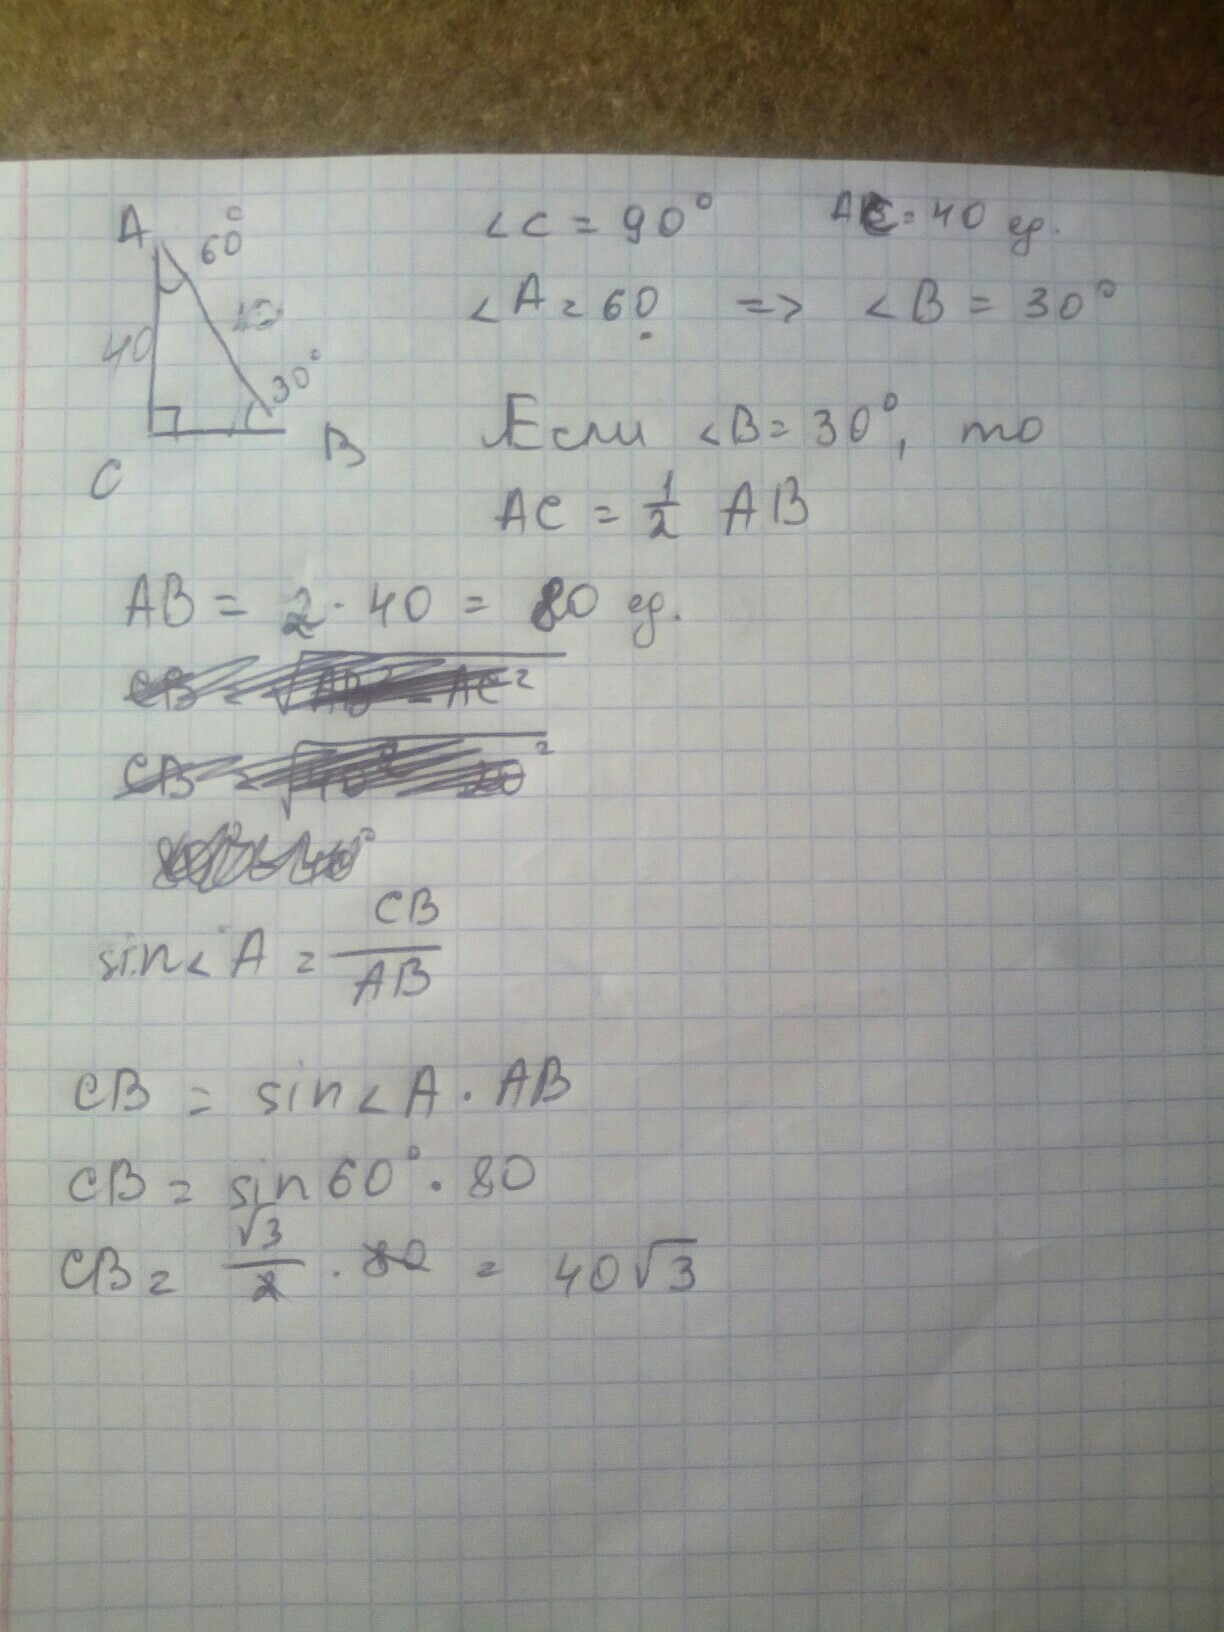 A 60°
40
30°
C
B
∠C = 90° AC = 40 ед.
∠A = 60 => ∠B = 30°
Если ∠B = 30°, то
AC = 1/2 AB
AB = 2 · 40 = 80 ед.
CB = √AB² - AC²
sin∠A = CB/AB
CB = sin∠A · AB
CB = sin60° · 80
CB = √3/2 · 80 = 40√3